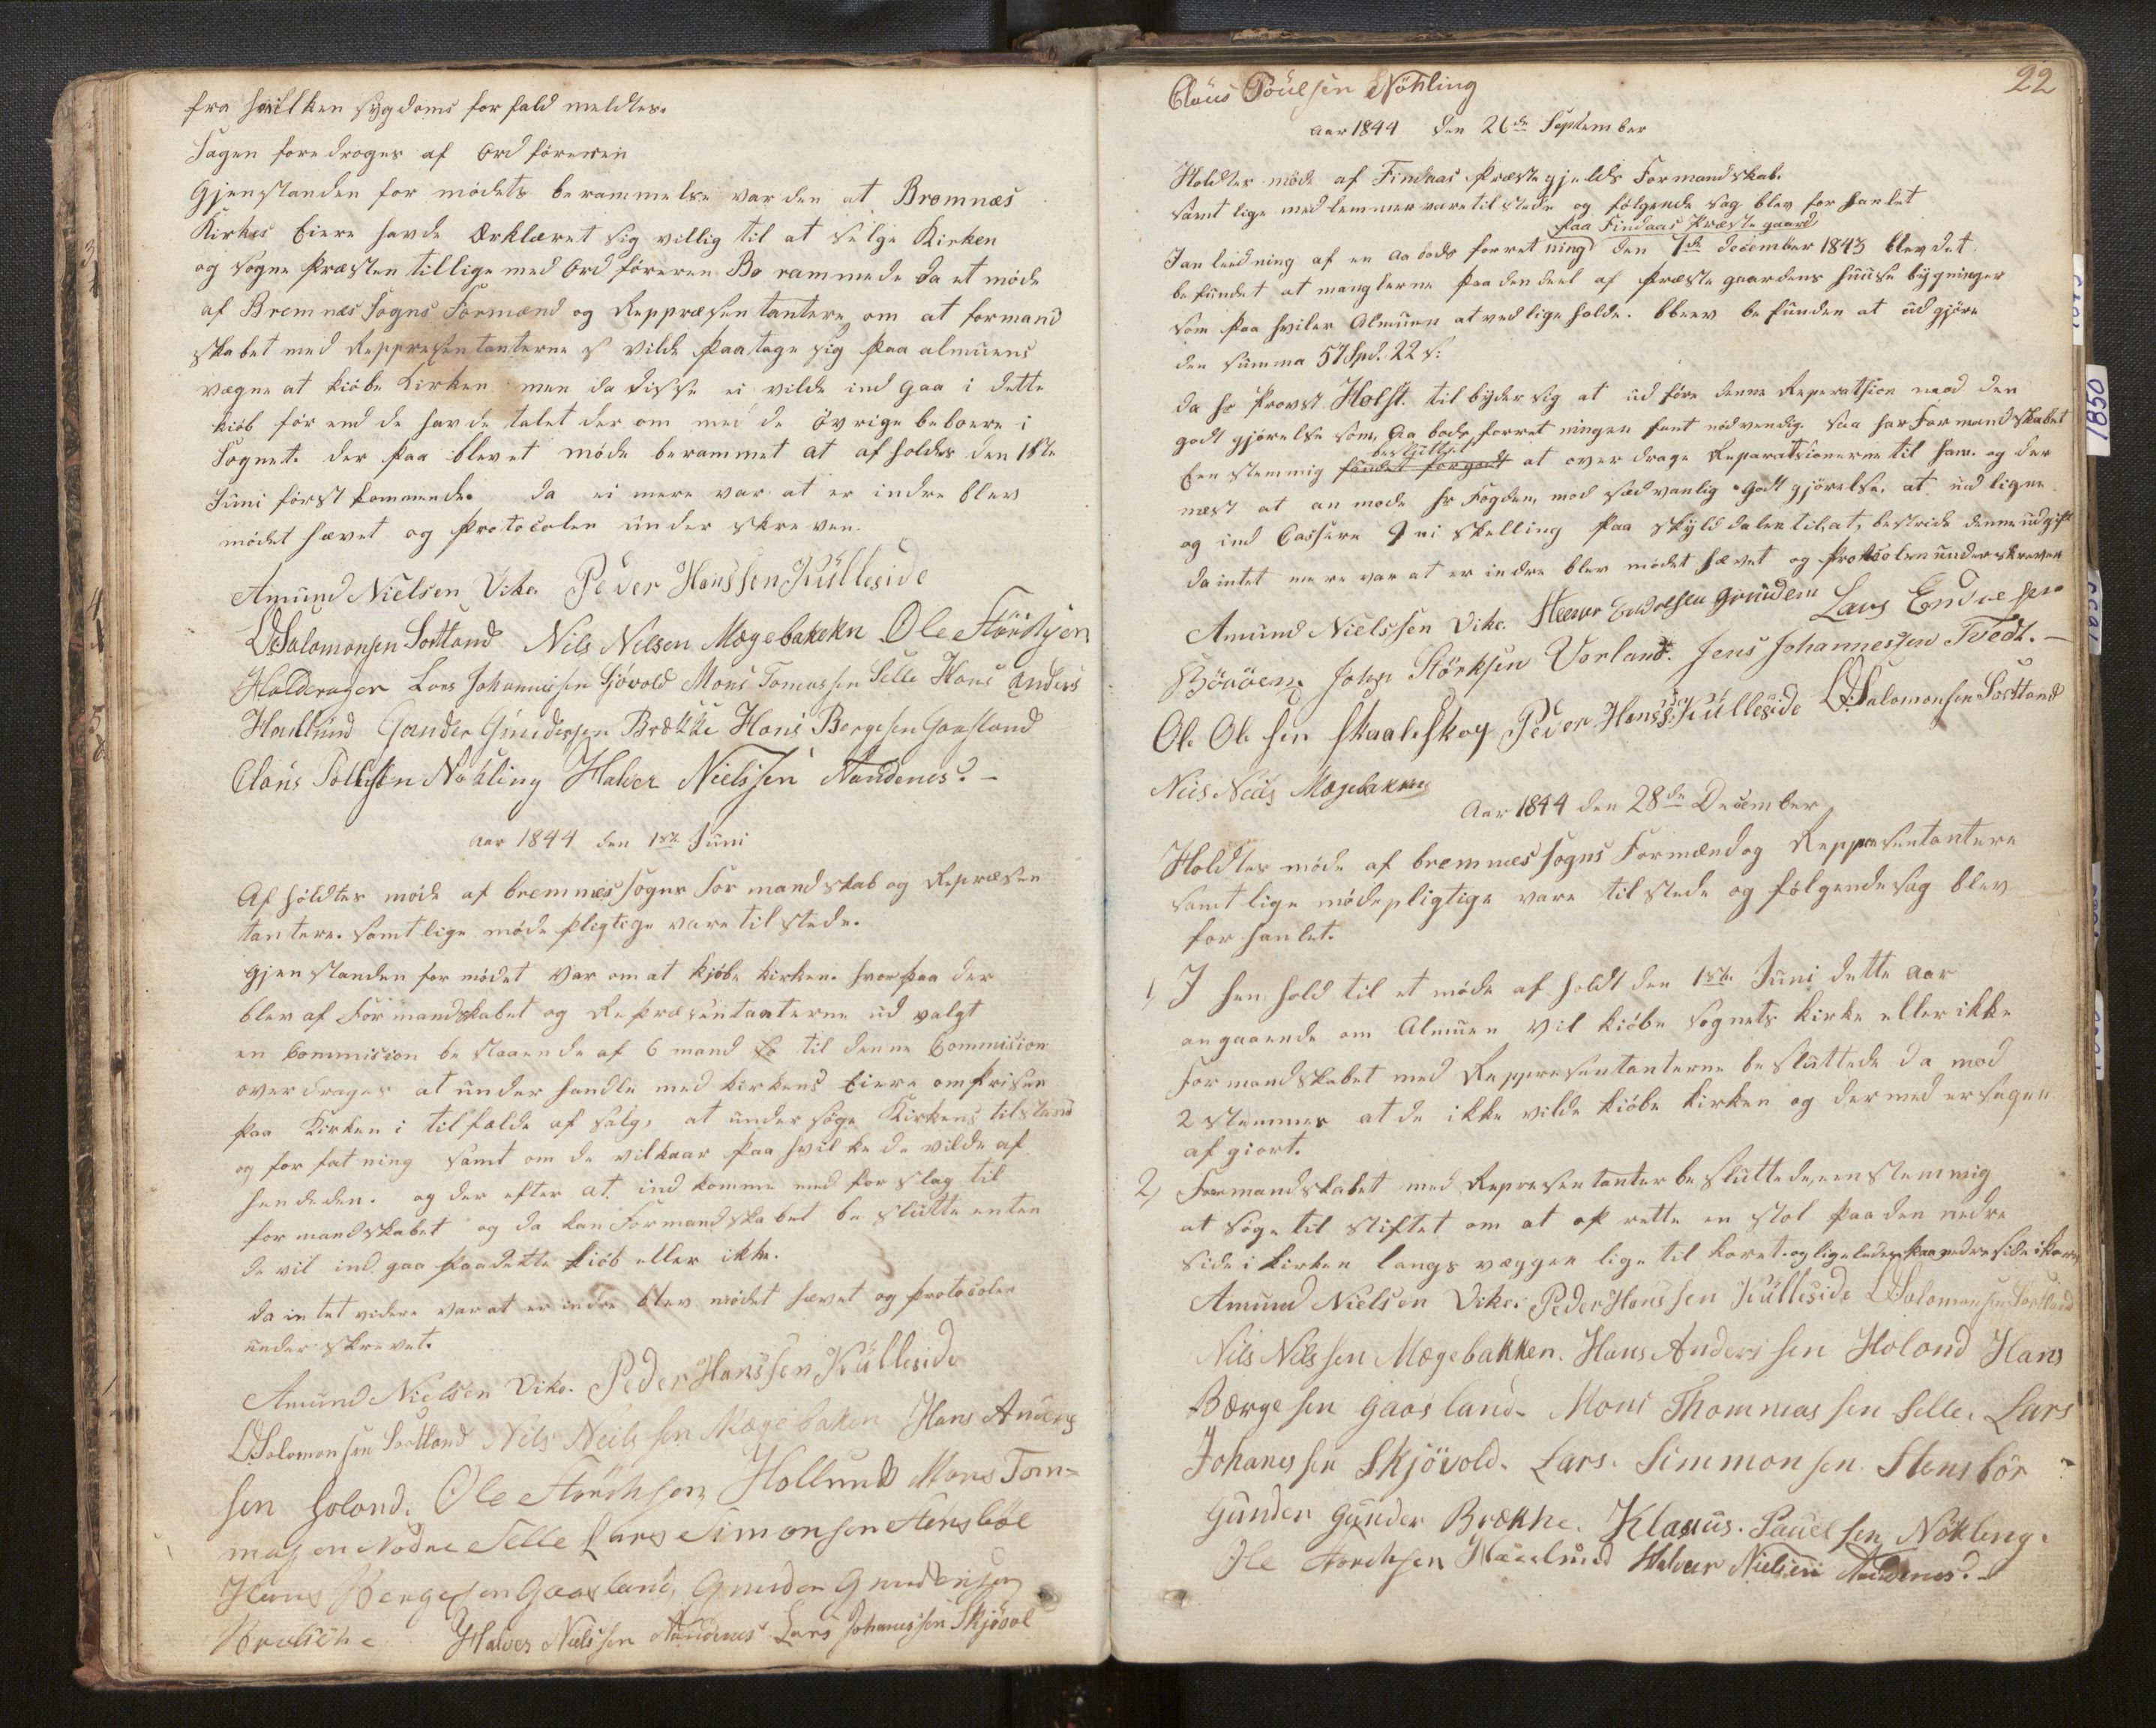 fra hvilken sygdoms forfald meldtes.
Sagen foredroges af Ordföreren
Gjenstanden for mödets berammelse var den at Bremnæs
Kirkes Eiere havde Erklæret sig villig til at selge Kirken
og sogne Præsten tillige med Ordföreren Be rammede da et möde
af Bremnes Sogns Formænd og Reppræsentantere om at formand
skabet med Reppresentanterne vilde paatage sig paa almuens
vægne at kiöbe Kirken men da disse ei vilde ind gaa i dette
kiöb för end de havde talet der om med de övrige beboere i
Sognet. der paa blev et möde berammet at af holdes den 1ste
Juni först kommende. da ei mere var at er indre blev
mödet hævet og Protocolen under skreven.
Amund Nielsen Vike. Peder Hanssen Külleside
O Salomonsen Sortland Nils Nilsen Mægebakekn Ole Störchsen
Halderager Lars Johannesen Sjövold Mons Tomassen Selle Hans Anders
Hallund Gunder Gundersen Brække Hans Bergesen Gaasland
Claus Pollsen Nökling Halver Nielssen Nandenes. -
Aar 1844 den 1ste Juni
Af höldtes möde af bremnes sogns Formandskab og Repræsen
tantere. samtlige möde pligtige vare tilstede.
Gjenstanden for mödet var om at kjöbe kirken. hvorpaa der
blev af Formandskabet og Repræsentanterne ud valgt
en Commision be staaende af 6 mand til denne Commision
over drages at under handle med kirkens Eiere om Prisen
paa Kirken i tilfælde af salg, at under söge Kirkens tilstand
og for fatning samt om de vilkaar paa hvilke de vilde af
hende den. og der efter at ind komme med forslag til
formandskabet og da kan Formandskabet be slutte enten
de vil ind gaa paa dette kiöb eller ikke.
da intet videre var at er indre blev mödet hævet og protocolen
under skrevet.
Amund Nielsen Vike. Peder Hanssen Külleside
O Solomonsen Sortland Nils Neilssen Mægebaken Hans Anders
sen Holond. Ole Störchsen Hollund Mons Tom=
massen Nodre Selle Lars Simonsen Stensböe
Hans Bergesen Gaasland, Gunder Gundersen
Halver Nielssen Nandenes Lars Johanessen Skjövol
22
Claus Pouelsen Nökling
Aar 1844 den 26de September
Holdtes möde af Findaas Præstegjelds Formandskab.
samtlige medlemmer vare tilstede og fölgende sag blev for hanlet
paa Findaas Præste gaard
I anleedning af en aabods forretning den 7de december 1843 blev det
befundet at manglerne paa den deel af Præste gaardens huuse bygninger
som paa hviler Almuen at vedlige holde. bleev be funden at udgjöre
den summa 57 Spd. 22 s:
da Hr Provst Holst. tilbyder sig at ud före denne Reperatsion mod den
godt gjörelse som, Aa bods forret ningen fant nödvendig. saa har Formandskabet
besluttet
Een stemmig fundet for godt at over drage Reparatsionerne til ham. og der
næst at an mode Hr Fogden, mod sædvanlig Godt gjörelse. at ud ligne
og ind Cassere 9 ni skelling paa skylddalen til, at, bestride denne udgift
da intet mere var at er indre blev mödet hævet og protocolen underskreven
Amund Nielssen Vike. Gründen Lars Endresen
Johan Störksen Vorland. Jens Johannessen Tvedt. -
Ole Olesen Skaaleskog Peder Hanss. Külleside O Salomonsen Sortland
Nils Neils Mægebakken
Aar 1844 den 28de December
Holdtes möde af bremnes sogns Formænd og Reppresentantere
samtlige mödepligtige vare tilstede og fölgende sag blev
for hanlet.
1, I hen hold til et möde af holdt den 1ste Juni dette aar
angaaende om Almuen vil kiöbe sognets kirke eller ikke
Formandskabet med Reppresentanterne besluttede da med
2 stemmer at de ikke vilde kiöbe kirken og dermed er sagen
af giort.
2, Formandskabet med Representanter besluttede, eenstemmig
at söge til stiftet om at op rette en stol paa den nedre
side i kirken langs væggen lige til koret. og ligeledes paa nedre side i koret
Amund Nielsen Vike. Peder Hanssen Külleside O Solomonsen Sortland
Nils Nilssen Mægebakken. Hans Anderssen Holond Hans
Bærgesen Gaasland. Mons Thommassen Selle. Lars
Johanessen Skjövold. Lars. Simmonsen. Stensbör
Gunder Gunder Brække. Klaus. Pauelsen Nökling.
Ole Störchsen Halver Nielsen Nandenes. -
1850